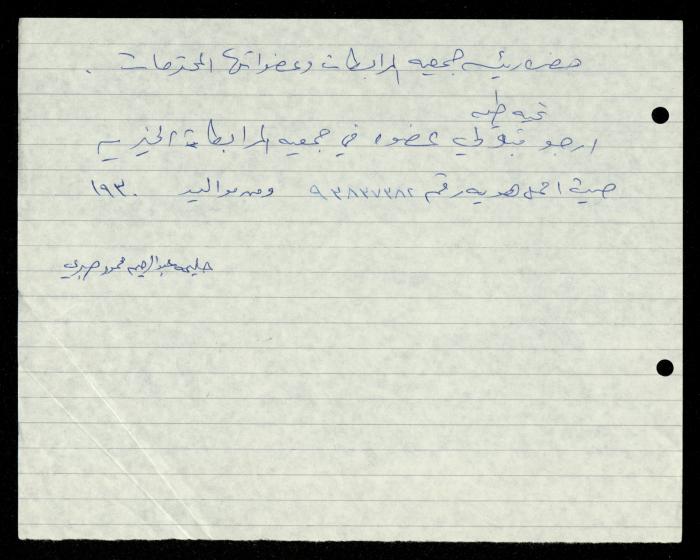 حضرة رئيسة جمعيه المرابطات وعضواتها المحترمات .
تحيه طيبه
ارجو قبولي عضوه في جمعيه المرابطات الخيريه
حيث احمل هويه رقم ٩٣٨٣٧٣٨٢ ومن مواليد ١٩٣٠
حليمه عبد الرحيم محمود صبري